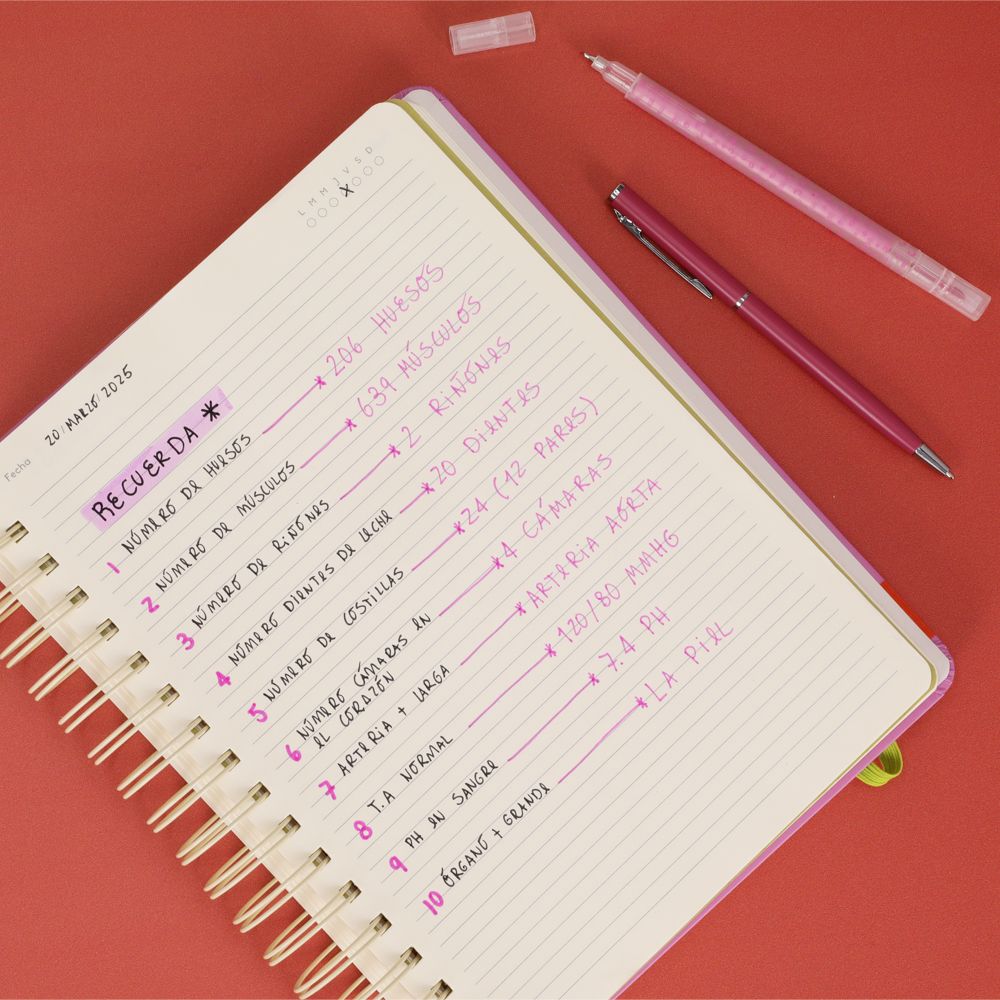 L M M J V S D
Fecha 20/MARZO/2025
RECUERDA *
1 NÚMERO DE HUESOS * 206 HUESOS
2 NÚMERO DE MÚSCULOS * 639 MÚSCULOS
3 NÚMERO DE RIÑONES * 2 RIÑONES
4 NÚMERO DIENTES DE LECHE * 20 DIENTES
5 NUMERO DE COSTILLAS * 24 (12 PARES)
6 NÚMERO CÁMARAS EN * 4 CÁMARAS
EL CORAZÓN
7 ARTERIA + LARGA * ARTERIA AORTA
8 T.A NORMAL * 120/80 MMHG
9 PH EN SANGRE * 7.4 PH
10 ÓRGANO + GRANDE * LA PIEL